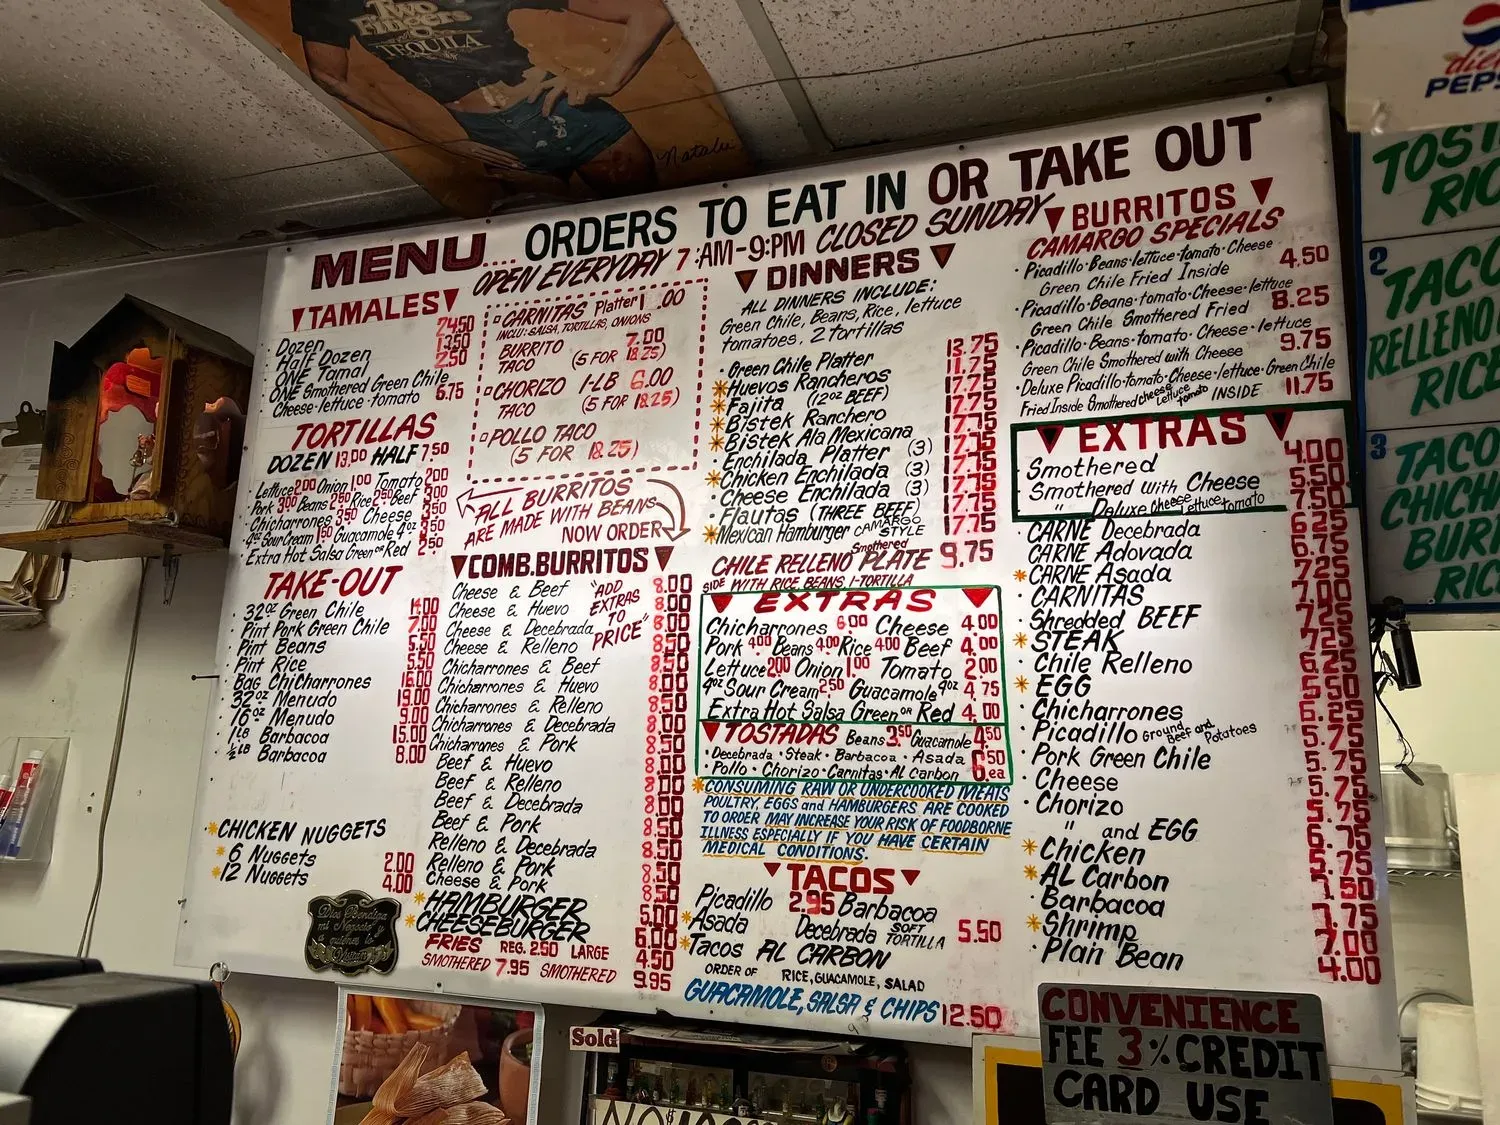 Two Fingers
TEQUILA
Natalie
diet
PEPSI
MENU.... ORDERS TO EAT IN OR TAKE OUT
OPEN EVERYDAY 7:AM-9:PM CLOSED SUNDAY
TAMALES
Dozen
Half Dozen 13.50
ONE Tamal 2.50
ONE Smothered Green Chile
Cheese·lettuce·tomato 6.75
TORTILLAS
DOZEN 13.00 HALF 7.50
Lettuce 2.00 Onion 1.00 Tomato 2.00
Pork 3.00 Beans 2.50 Rice 2.50 Beef 3.00
Chicharrones 3.50 Cheese 3.50
4oz Sour Cream 1.50 Guacamole 4oz
Extra Hot Salsa Green or Red 2.50
TAKE-OUT
32oz Green Chile 14.00
Pint Pork Green Chile 7.00
Pint Beans 5.50
Pint Rice 5.50
Bag Chicharrones 16.00
32oz Menudo 13.00
16oz Menudo 9.00
1LB Barbacoa 15.00
½LB Barbacoa 8.00
CHICKEN NUGGETS
6 Nuggets 2.00
12 Nuggets 4.00
Dios Bendiga
mi Negocio y
a quienes lo
Visitan
CARNITAS Platter 1 .00
INCLU: SALSA, TORTILLAS, ONIONS
BURRITO 7.00
TACO (5 FOR 18.25)
CHORIZO 1-LB 6.00
TACO (5 FOR 18.25)
POLLO TACO
(5 FOR 18.25)
ALL BURRITOS
ARE MADE WITH BEANS
NOW ORDER
COMB. BURRITOS
"ADD
EXTRAS
TO
PRICE"
Cheese & Beef 8.00
Cheese & Huevo 8.00
Cheese & Decebrada 8.00
Cheese & Relleno 8.50
Chicharrones & Beef 8.50
Chicharrones & Huevo 8.00
Chicharrones & Relleno 8.50
Chicharrones & Decebrada 8.50
Chicharrones & Pork 8.50
Beef & Huevo 8.00
Beef & Relleno 8.50
Beef & Decebrada 8.00
Beef & Pork 8.50
Relleno & Decebrada 8.50
Relleno & Pork 8.50
Cheese & Pork 8.50
HAMBURGER 5.00
CHEESEBURGER 6.00
FRIES REG. 2.50 LARGE 4.50
SMOTHERED 7.95 SMOTHERED 9.95
DINNERS
ALL DINNERS INCLUDE:
Green Chile, Beans, Rice, lettuce
tomatoes, 2 tortillas
Green Chile Platter 13.75
Huevos Rancheros 11.75
Fajita (12oz BEEF) 17.75
Bistek Ranchero 17.75
Bistek Ala Mexicana 17.75
Enchilada Platter (3) 17.75
Chicken Enchilada (3) 17.75
Cheese Enchilada (3) 17.75
Flautas (THREE BEEF) 17.75
Mexican Hamburger CAMARGO STYLE 17.75
Smothered
CHILE RELLENO PLATE 9.75
SIDE WITH RICE BEANS 1-TORTILLA
EXTRAS
Chicharrones 6.00 Cheese 4.00
Pork 4.00 Beans 4.00 Rice 4.00 Beef 4.00
Lettuce 2.00 Onion 1.00 Tomato 2.00
4oz Sour Cream 2.50 Guacamole 4oz 4.75
Extra Hot Salsa Green or Red 4.00
TOSTADAS Beans 3.50 Guacamole 4.50
·Decebrada·Steak·Barbacoa·Asada
·Pollo·Chorizo·Carnitas·AL Carbon 6.50 ea
CONSUMING RAW OR UNDERCOOKED MEATS
POULTRY, EGGS and HAMBURGERS ARE COOKED
TO ORDER MAY INCREASE YOUR RISK OF FOODBORNE
ILLNESS ESPECIALLY IF YOU HAVE CERTAIN
MEDICAL CONDITIONS.
TACOS
Picadillo 2.95 Barbacoa
Asada Decebrada SOFT TORTILLA 5.50
Tacos AL CARBON
ORDER OF RICE, GUACAMOLE, SALAD
GUACAMOLE, SALSA & CHIPS 12.50
BURRITOS
CAMARGO SPECIALS
·Picadillo·Beans·lettuce·tomato·Cheese
Green Chile Fried Inside 4.50
·Picadillo·Beans·tomato·Cheese·lettuce
Green Chile Smothered Fried 8.25
·Picadillo·Beans·tomato·Cheese·lettuce
Green Chile Smothered with Cheese 9.75
·Deluxe Picadillo·tomato·Cheese·lettuce·Green Chile
Fried Inside Smothered cheese Lettuce tomato INSIDE 11.75
EXTRAS
Smothered 4.00
Smothered with Cheese 5.50
" Deluxe Cheese Lettuce Tomato 7.50
CARNE Decebrada 6.25
CARNE Adovada 6.75
CARNE Asada 7.25
CARNITAS 7.00
Shredded BEEF 7.25
STEAK 7.25
Chile Relleno 6.25
EGG 5.50
Chicharrones 6.25
Picadillo Ground Beef and Potatoes 5.75
Pork Green Chile 5.75
Cheese 5.75
Chorizo 5.75
" and EGG 6.75
Chicken 5.75
AL Carbon
Barbacoa 7.75
Shrimp 7.00
Plain Bean 4.00
CONVENIENCE
FEE 3% CREDIT
CARD USE
Sold
2
TACO
RELLENO
RICE
3
TACO
BURR
RIC